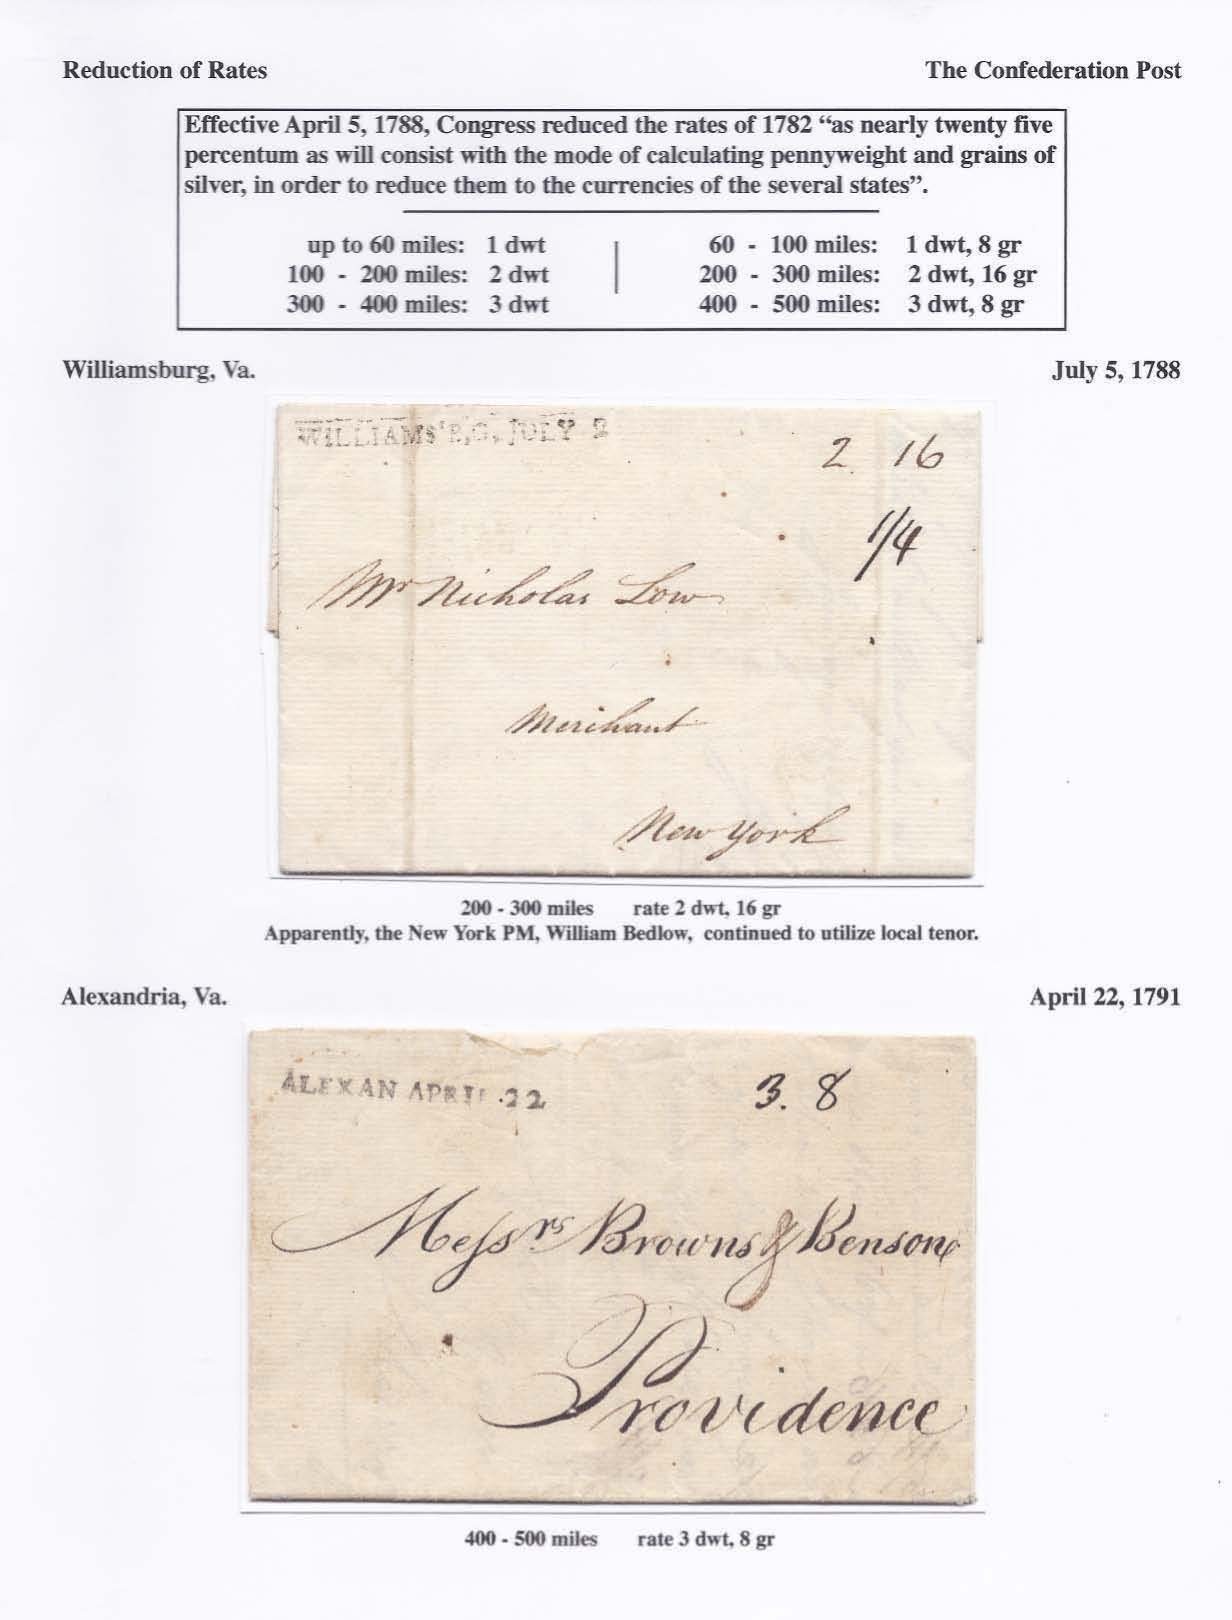 Reduction of Rates The Confederation Post
Effective April 5, 1788, Congress reduced the rates of 1782 “as nearly twenty five
percentum as will consist with the mode of calculating pennyweight and grains of
silver, in order to reduce them to the currencies of the several states”.
up to 60 miles: 1 dwt 60 - 100 miles: 1 dwt, 8 gr
100 - 200 miles: 2 dwt 200 - 300 miles: 2 dwt, 16 gr
300 - 400 miles: 3 dwt 400 - 500 miles: 3 dwt, 8 gr
Williamsburg, Va. July 5, 1788
WILLIAMS'B.G. JULY 2
2 16
1/4
Mr Nicholas Low
Merchant
New York
200 - 300 miles rate 2 dwt, 16 gr
Apparently, the New York PM, William Bedlow, continued to utilize local tenor.
Alexandria, Va. April 22, 1791
ALEXAN APRIL .22
3. 8
Messrs Browns & Benson
Providence
400 - 500 miles rate 3 dwt, 8 gr